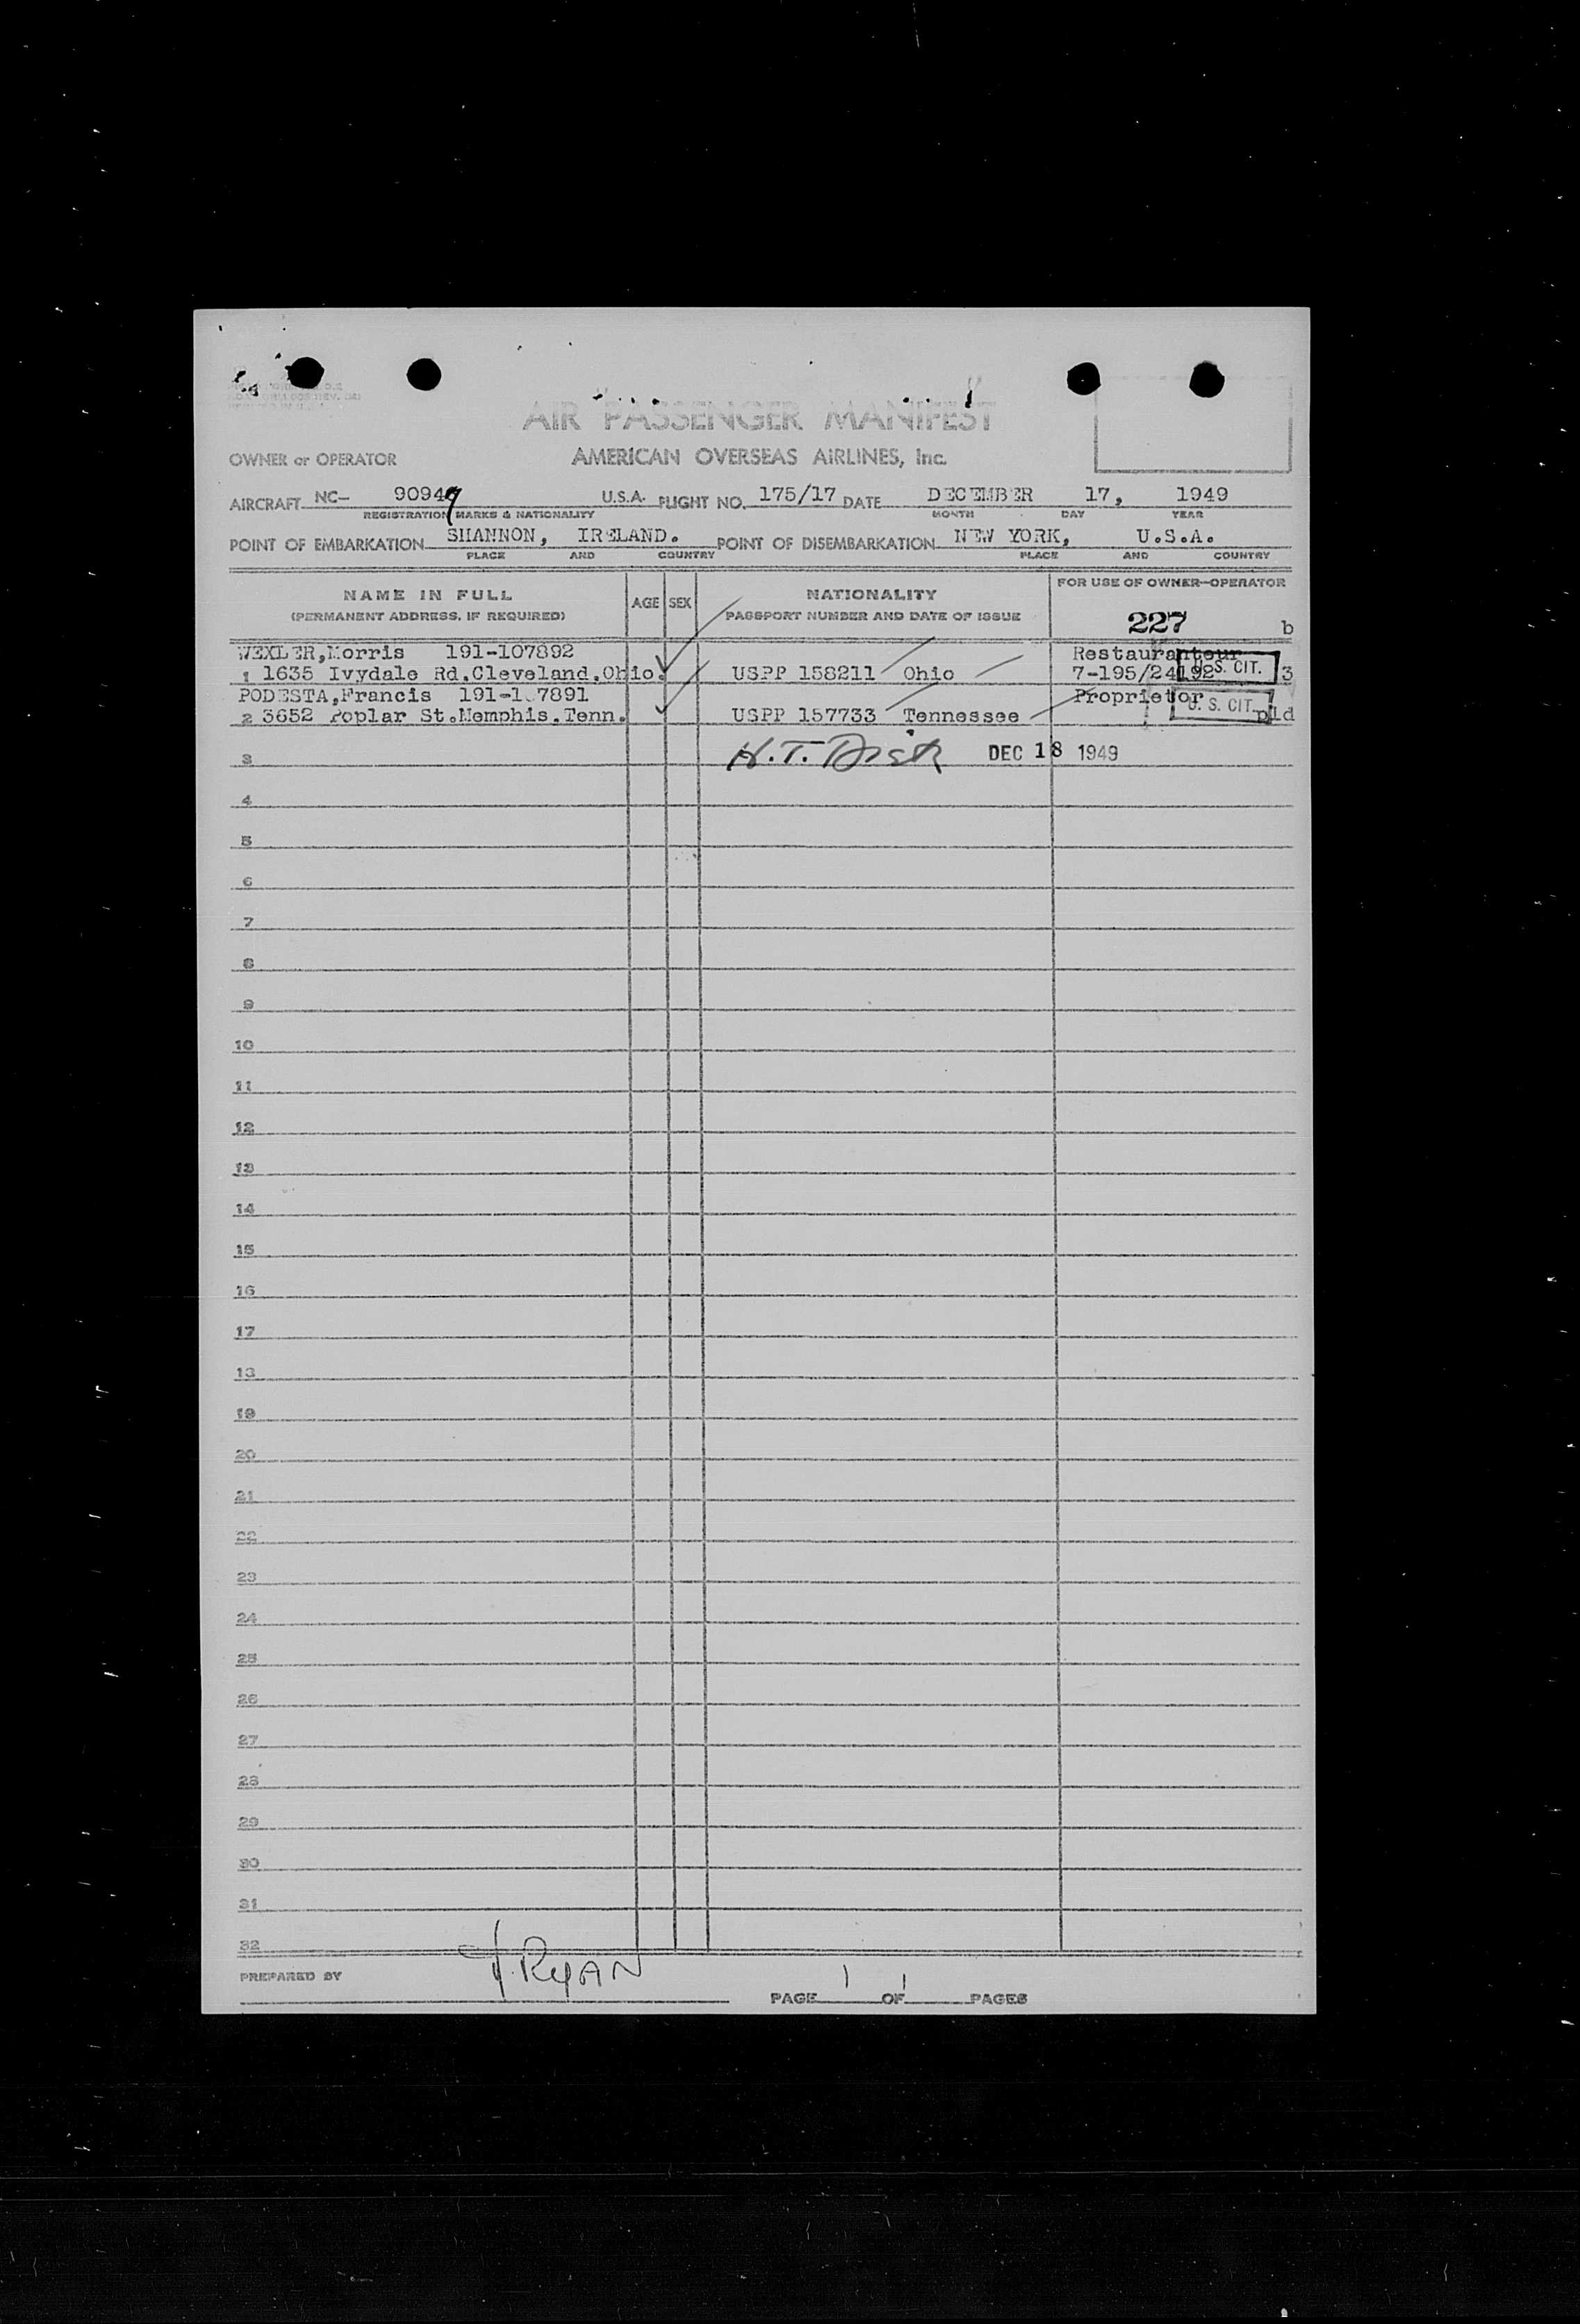 AIR PASSENGER MANIFEST
OWNER or OPERATOR AMERICAN OVERSEAS AIRLINES, Inc.
AIRCRAFT NC- 90949 U.S.A. FLIGHT NO. 175/17 DATE DECEMBER 17, 1949
REGISTRATION MARKS & NATIONALITY MONTH DAY YEAR
POINT OF EMBARKATION SHANNON, IRELAND. POINT OF DISEMBARKATION NEW YORK, U.S.A.
PLACE AND COUNTRY PLACE AND COUNTRY
NAME IN FULL AGE SEX NATIONALITY FOR USE OF OWNER-OPERATOR
(PERMANENT ADDRESS, IF REQUIRED) PASSPORT NUMBER AND DATE OF ISSUE 227 b
WEXLER,Morris 191-107892 Restauranteur
1 1635 Ivydale Rd.Cleveland.Ohio. USPP 158211 Ohio 7-195/24192 U.S. CIT. 3
PODESTA,Francis 191-1 7891 Proprietor
2 3652 Poplar St.Memphis.Tenn. USPP 157733 Tennessee U. S. CIT. pld
3 H.T. DEC 18 1949
4
5
6
7
8
9
10
11
12
13
14
15
16
17
18
19
20
21
22
23
24
25
26
27
28
29
30
31
32
PREPARED BY RYAN
PAGE 1 OF 1 PAGES